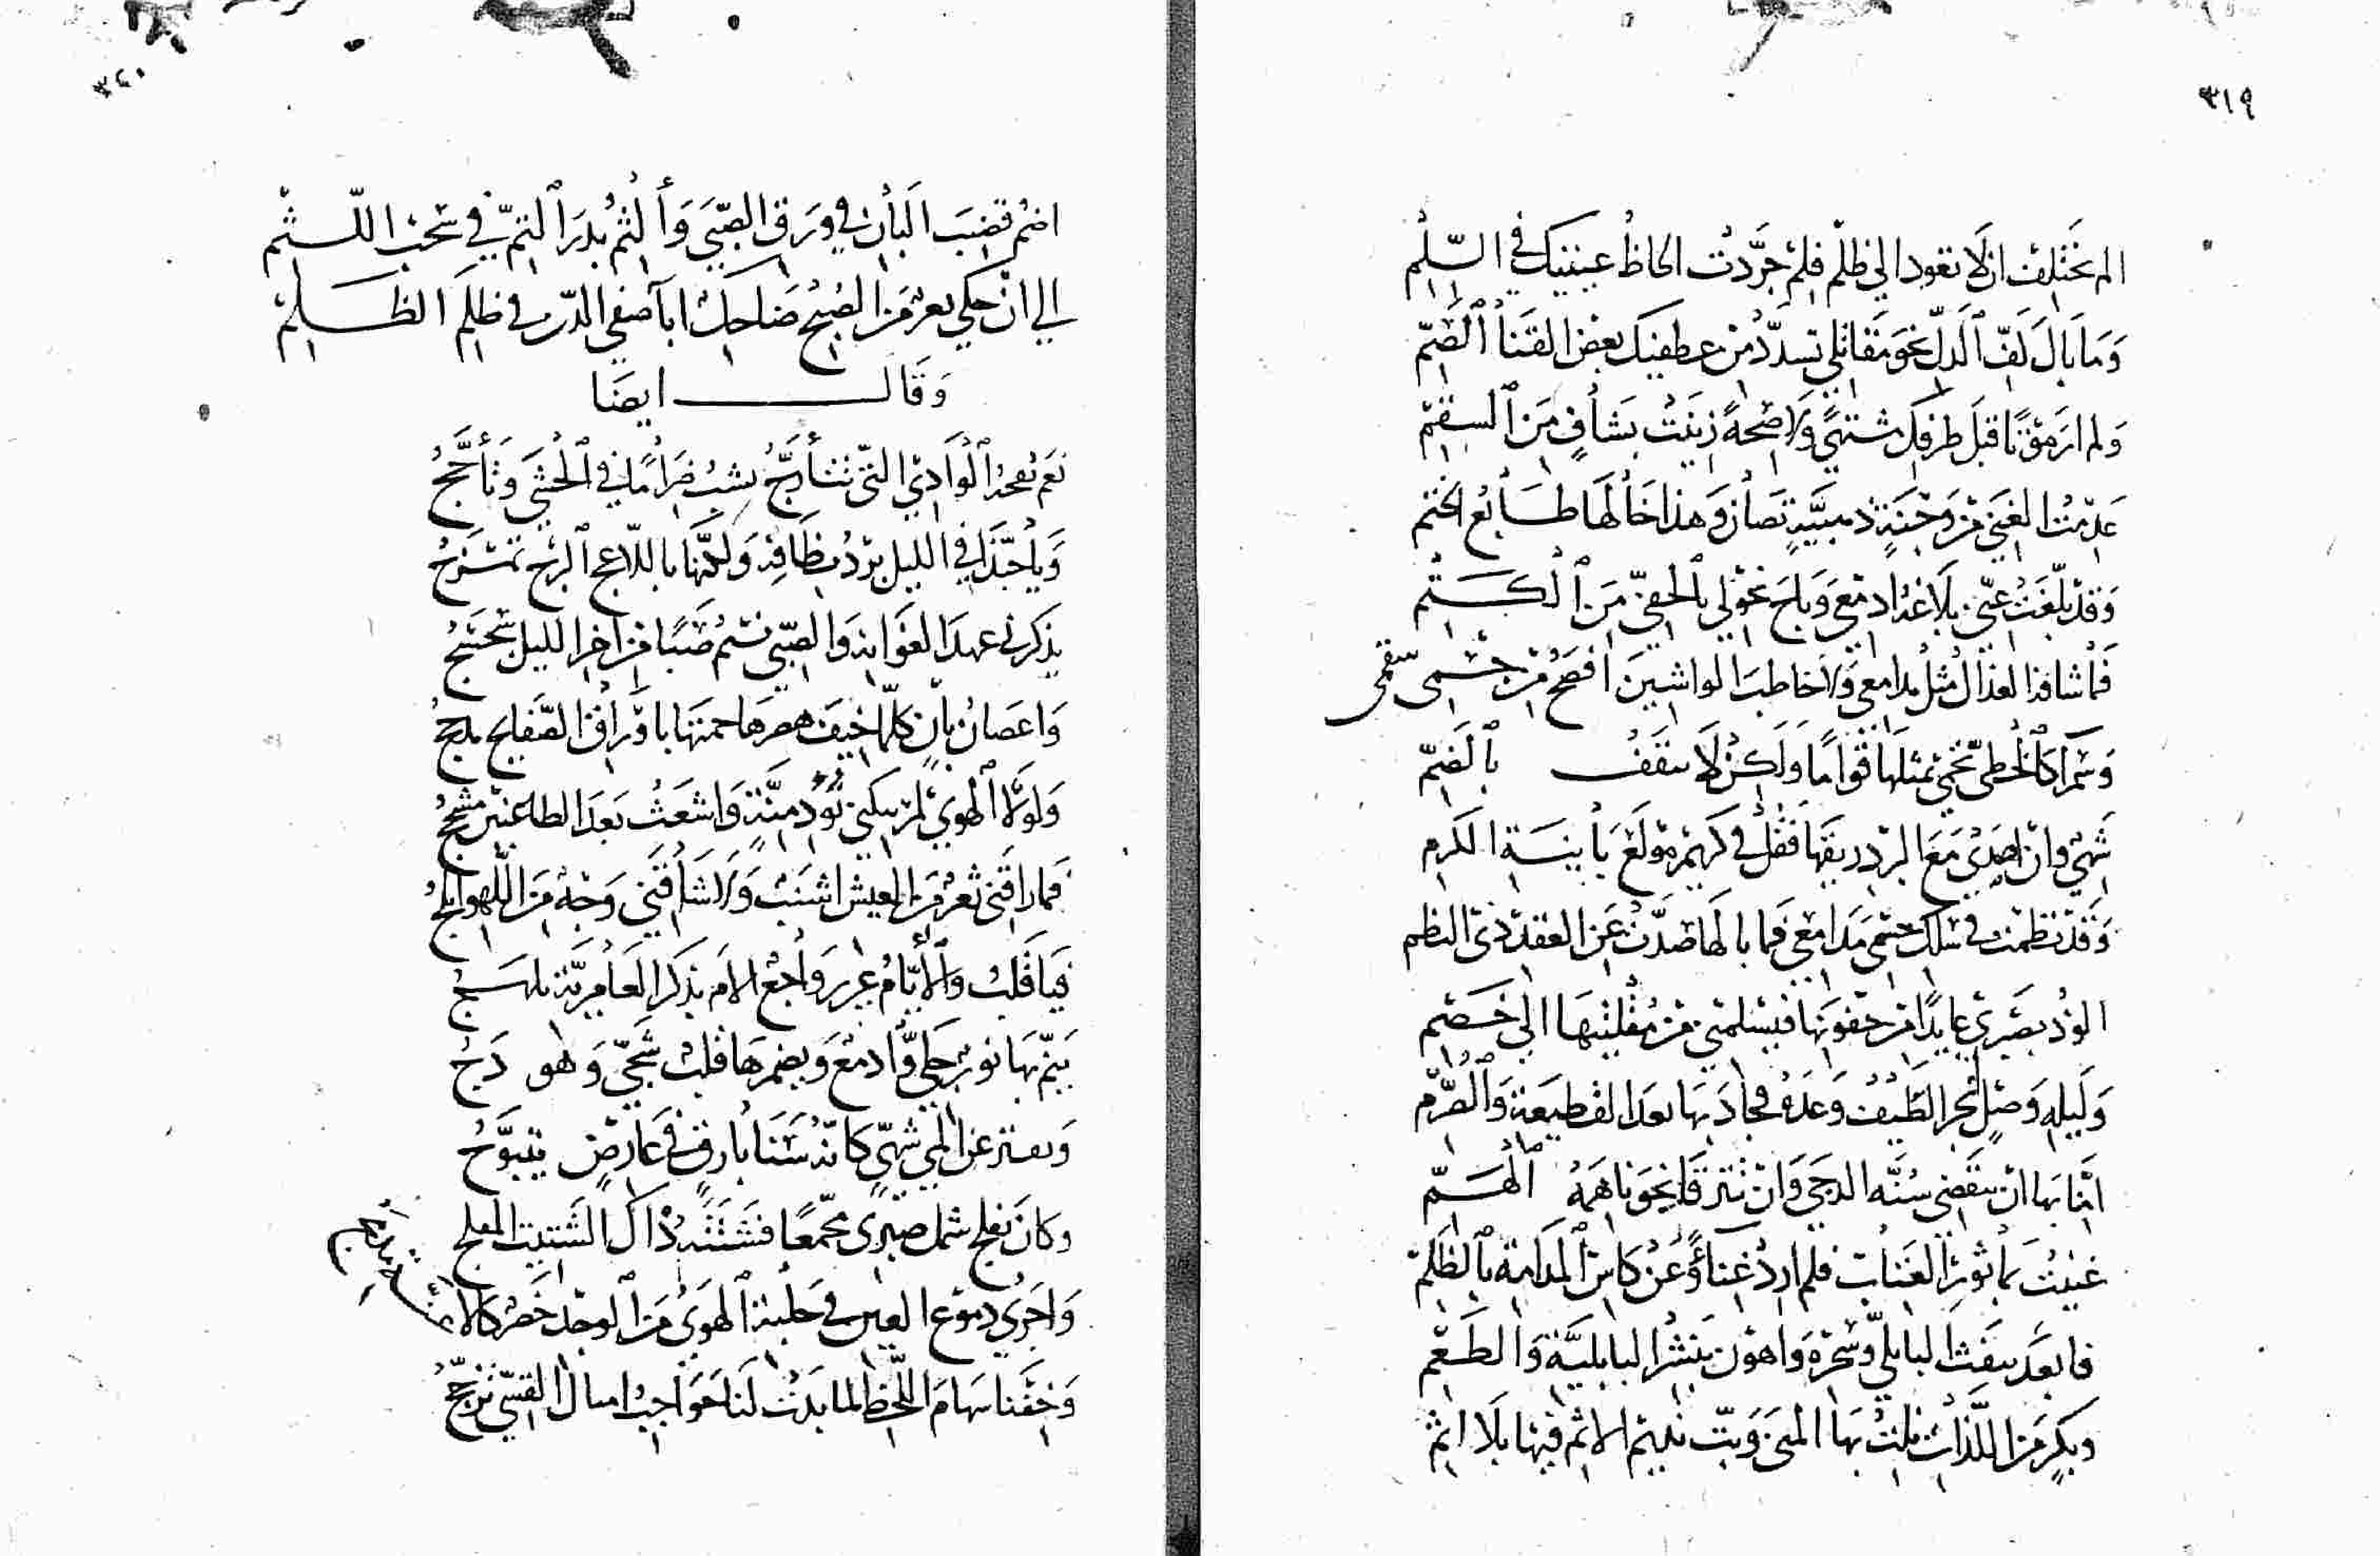 ٣١٩
الم تختلف ان لا تعود الي ظلم فلم جردت الحاظ عينيك في السلم
وما بال لف الدل نحو مقاتلي تسدد من عطفيك بعض القنا الصم
ولم ارمقتا قبل طرفك مشتهي ولا صحة زينت بشاف من السقم
عدمت الغنى من وجنة ذهبية تصان وهذا خالها طابع الختم
وقد بلغت عني بلاغة ادمعي وباح نحولي بالخفي من الكتم
فما شافه العذال مثل مدامعي ولا خاطب الواشين افصح من جسمي سقمي
وسمرا كالخطي تحمي بمثلها قواما ولكن لا يثقف بالضم
شهي وان اصدي مع البرد ريقها فقل في كريم مولع بابنة الكرم
وقد نظمت في سلك جسمي مدامعي فما بالها صدت عن العقد ذي النظم
الوذ بصبري عايذا من جفونها فيسلمني من مقلتيها الي خصم
وليله وصل انجز الطيف وعده فجاد بها بعد القطيعة والصرم
اتانا بها ان ينقضي سنه الدجي وان تترقا نحونا همة الهم
غنيت بماثور الغناء فلم ارد غناء وعن كاس المدامة بالظلم
فابعد بنفث البابلي وسحره واهون بنشر البابلية والطعم
وبكر من اللذات نلت بها المنى وبت نديم الاثم فيها بلا اثم
٣٢٠
اضم قضيب البان في ورق الصبي والثم بدر التم في سحب اللثم
الي ان حكي ثغر من الصبح ضاحك ابا صفي الدر في ظلم الظلم
وقال ايضا
نعم نفحة الوادي التي تتأرج يشب ضراما في الحشي وتأجج
ويا حبذا في الليل برد نطافه ولكنها باللاعج البرح تمزج
يذكرني عهد الغواني والصبي نسيم صبا من اخر الليل سجسج
واغصان بان كلما خيف هصرها حمتها باوراق الصفايح مدلج
ولولا الهوي لم يبكني نؤد دمنة واشعث بعد الظاعنين مشجج
فما راقني ثغر من العيش اشنب ولا شاقني وجه من اللهو ابلج
فيا قلب والايام غرير واجع الام بذكر العامرية تلهج
ينم بها نور جلي وادمع ويضمرها قلب شجي وهو دج
ويفتر عن المي شهي كانه سنا بارق في عارض يتبوج
وكان بفلج شمل صبري مجمعا فشتته ذاك الشتيت المفلج
واجري دموع العين في حلبة الهوي من الوجد خصر كالاعنة مدمج
وخفنا سهام اللحظ لما بدت لنا حواجب امثال القسي تزجج